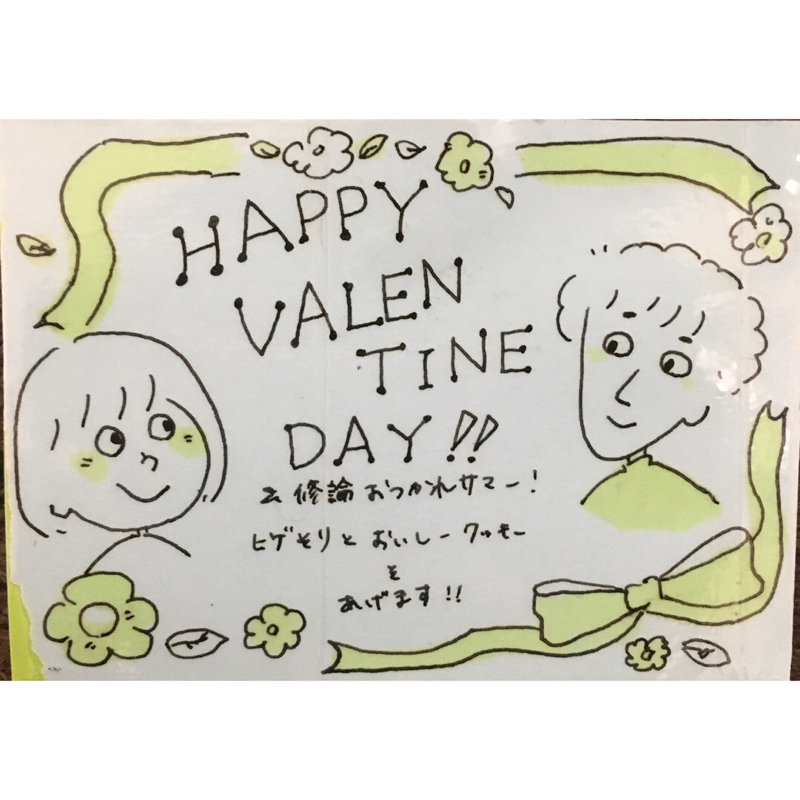 HAPPY
VALEN
TINE
DAY!!
& 修論 おつかれサマー!
ヒゲそりと おいしークッキー
を
あげます!!